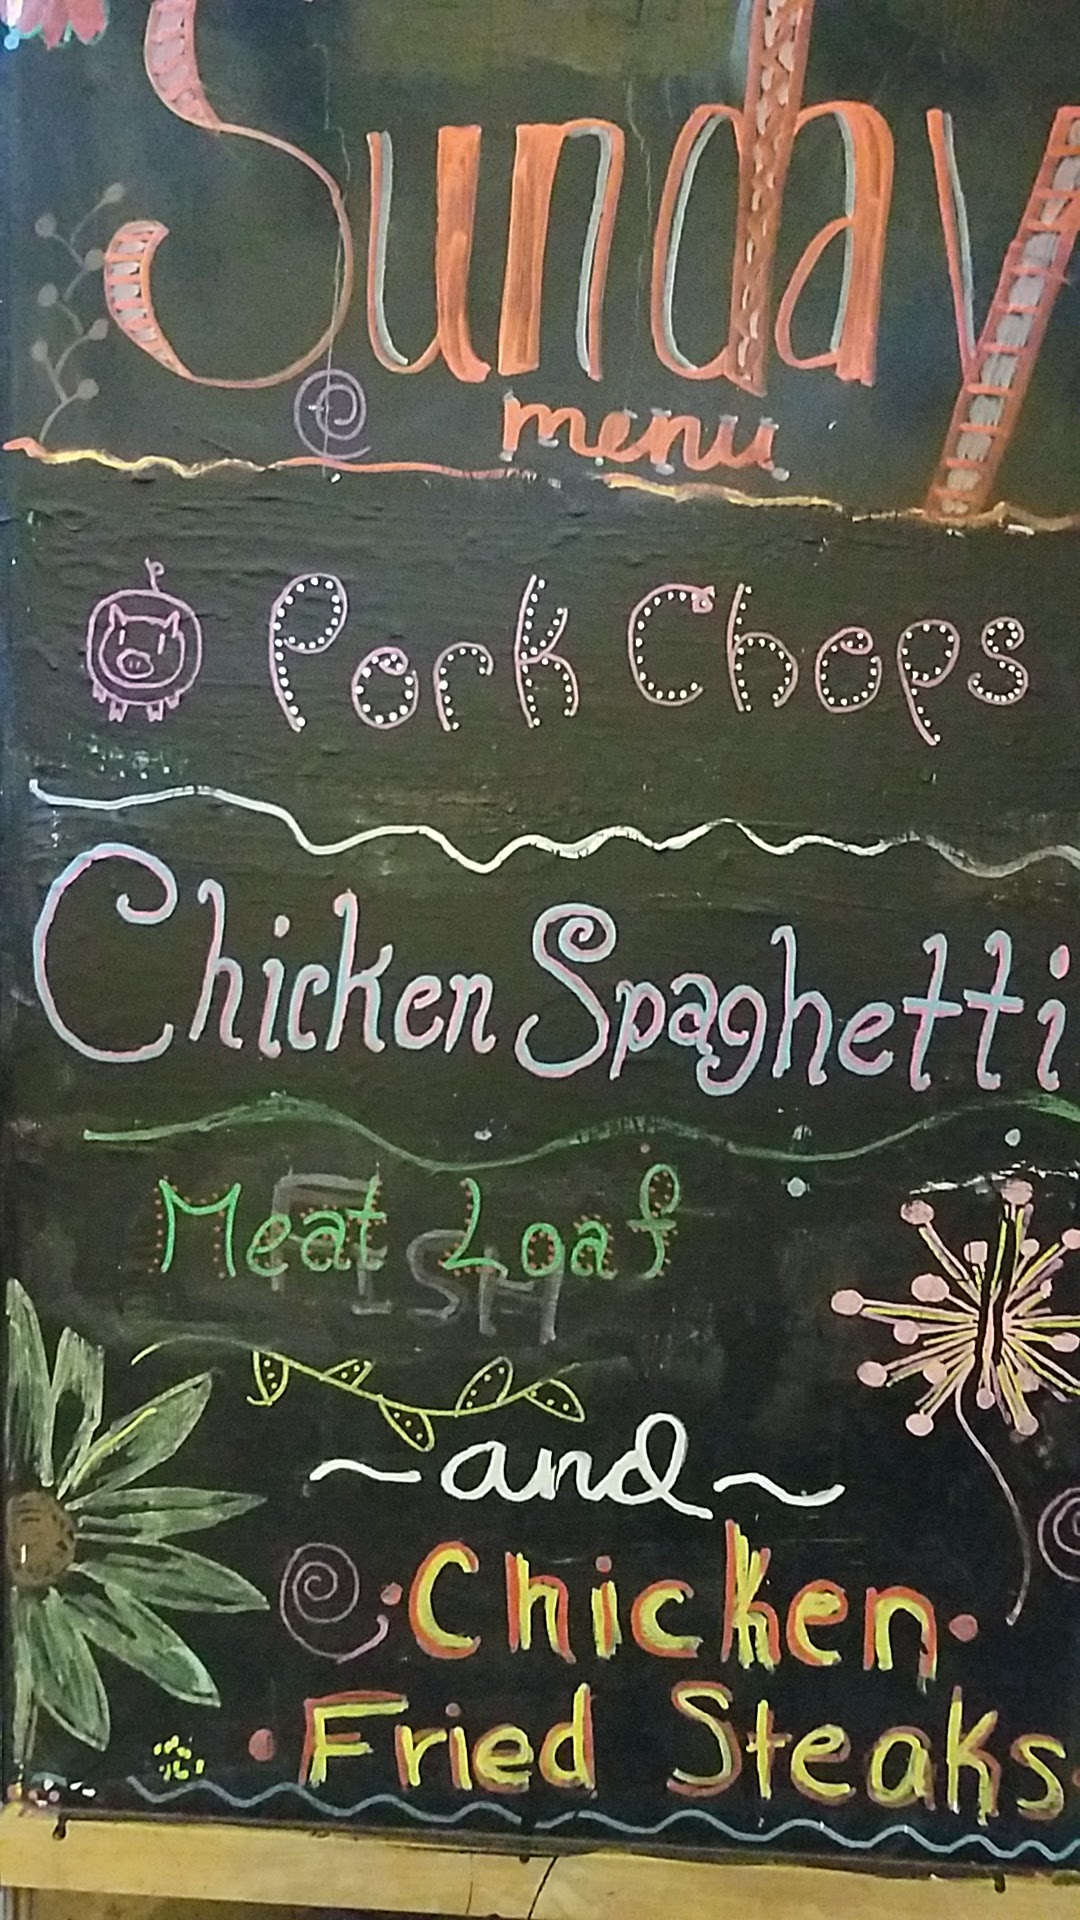 Sunday
menu
Pork Chops
Chicken Spaghetti
Meat Loaf
FISH
~and~
Chicken
Fried Steaks